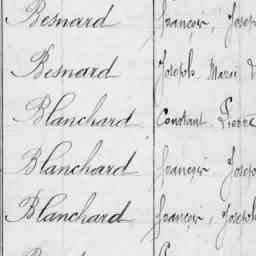 Besnard François, Joseph
Besnard Joseph Marie
Blanchard Constant Pierre
Blanchard François Joseph
Blanchard François, Joseph